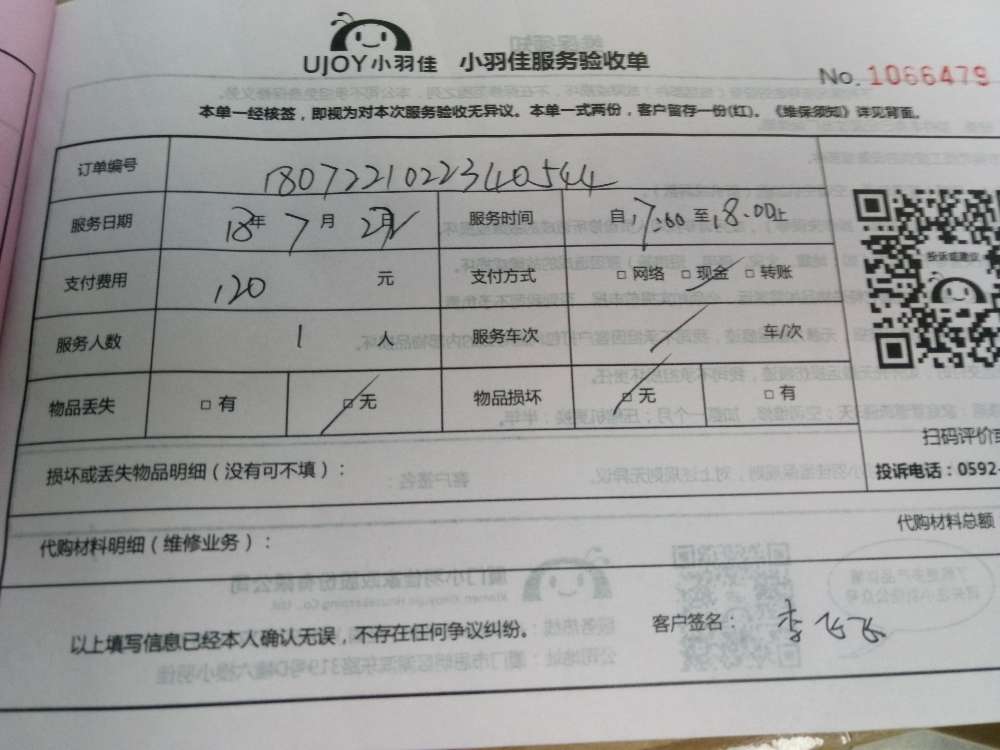 UJOY小羽佳 小羽佳服务验收单
No. 1066479
本单一经核签，即视为对本次服务验收无异议。本单一式两份，客户留存一份(红)。《维保须知》详见背面。
订单编号 1807221022340544
服务日期 18年 7月 2 服务时间 自17.00至18.00止
支付费用 120 元 支付方式 □网络 □现金 □转账
服务人数 1 人 服务车次 / 车/次
物品丢失 □有 □无 物品损坏 □无 □有
投诉或建议
扫码评价或
投诉电话：0592-
损坏或丢失物品明细（没有可不填）：
代购材料总额
代购材料明细（维修业务）：
以上填写信息已经本人确认无误，不存在任何争议纠纷。 客户签名： 李飞飞